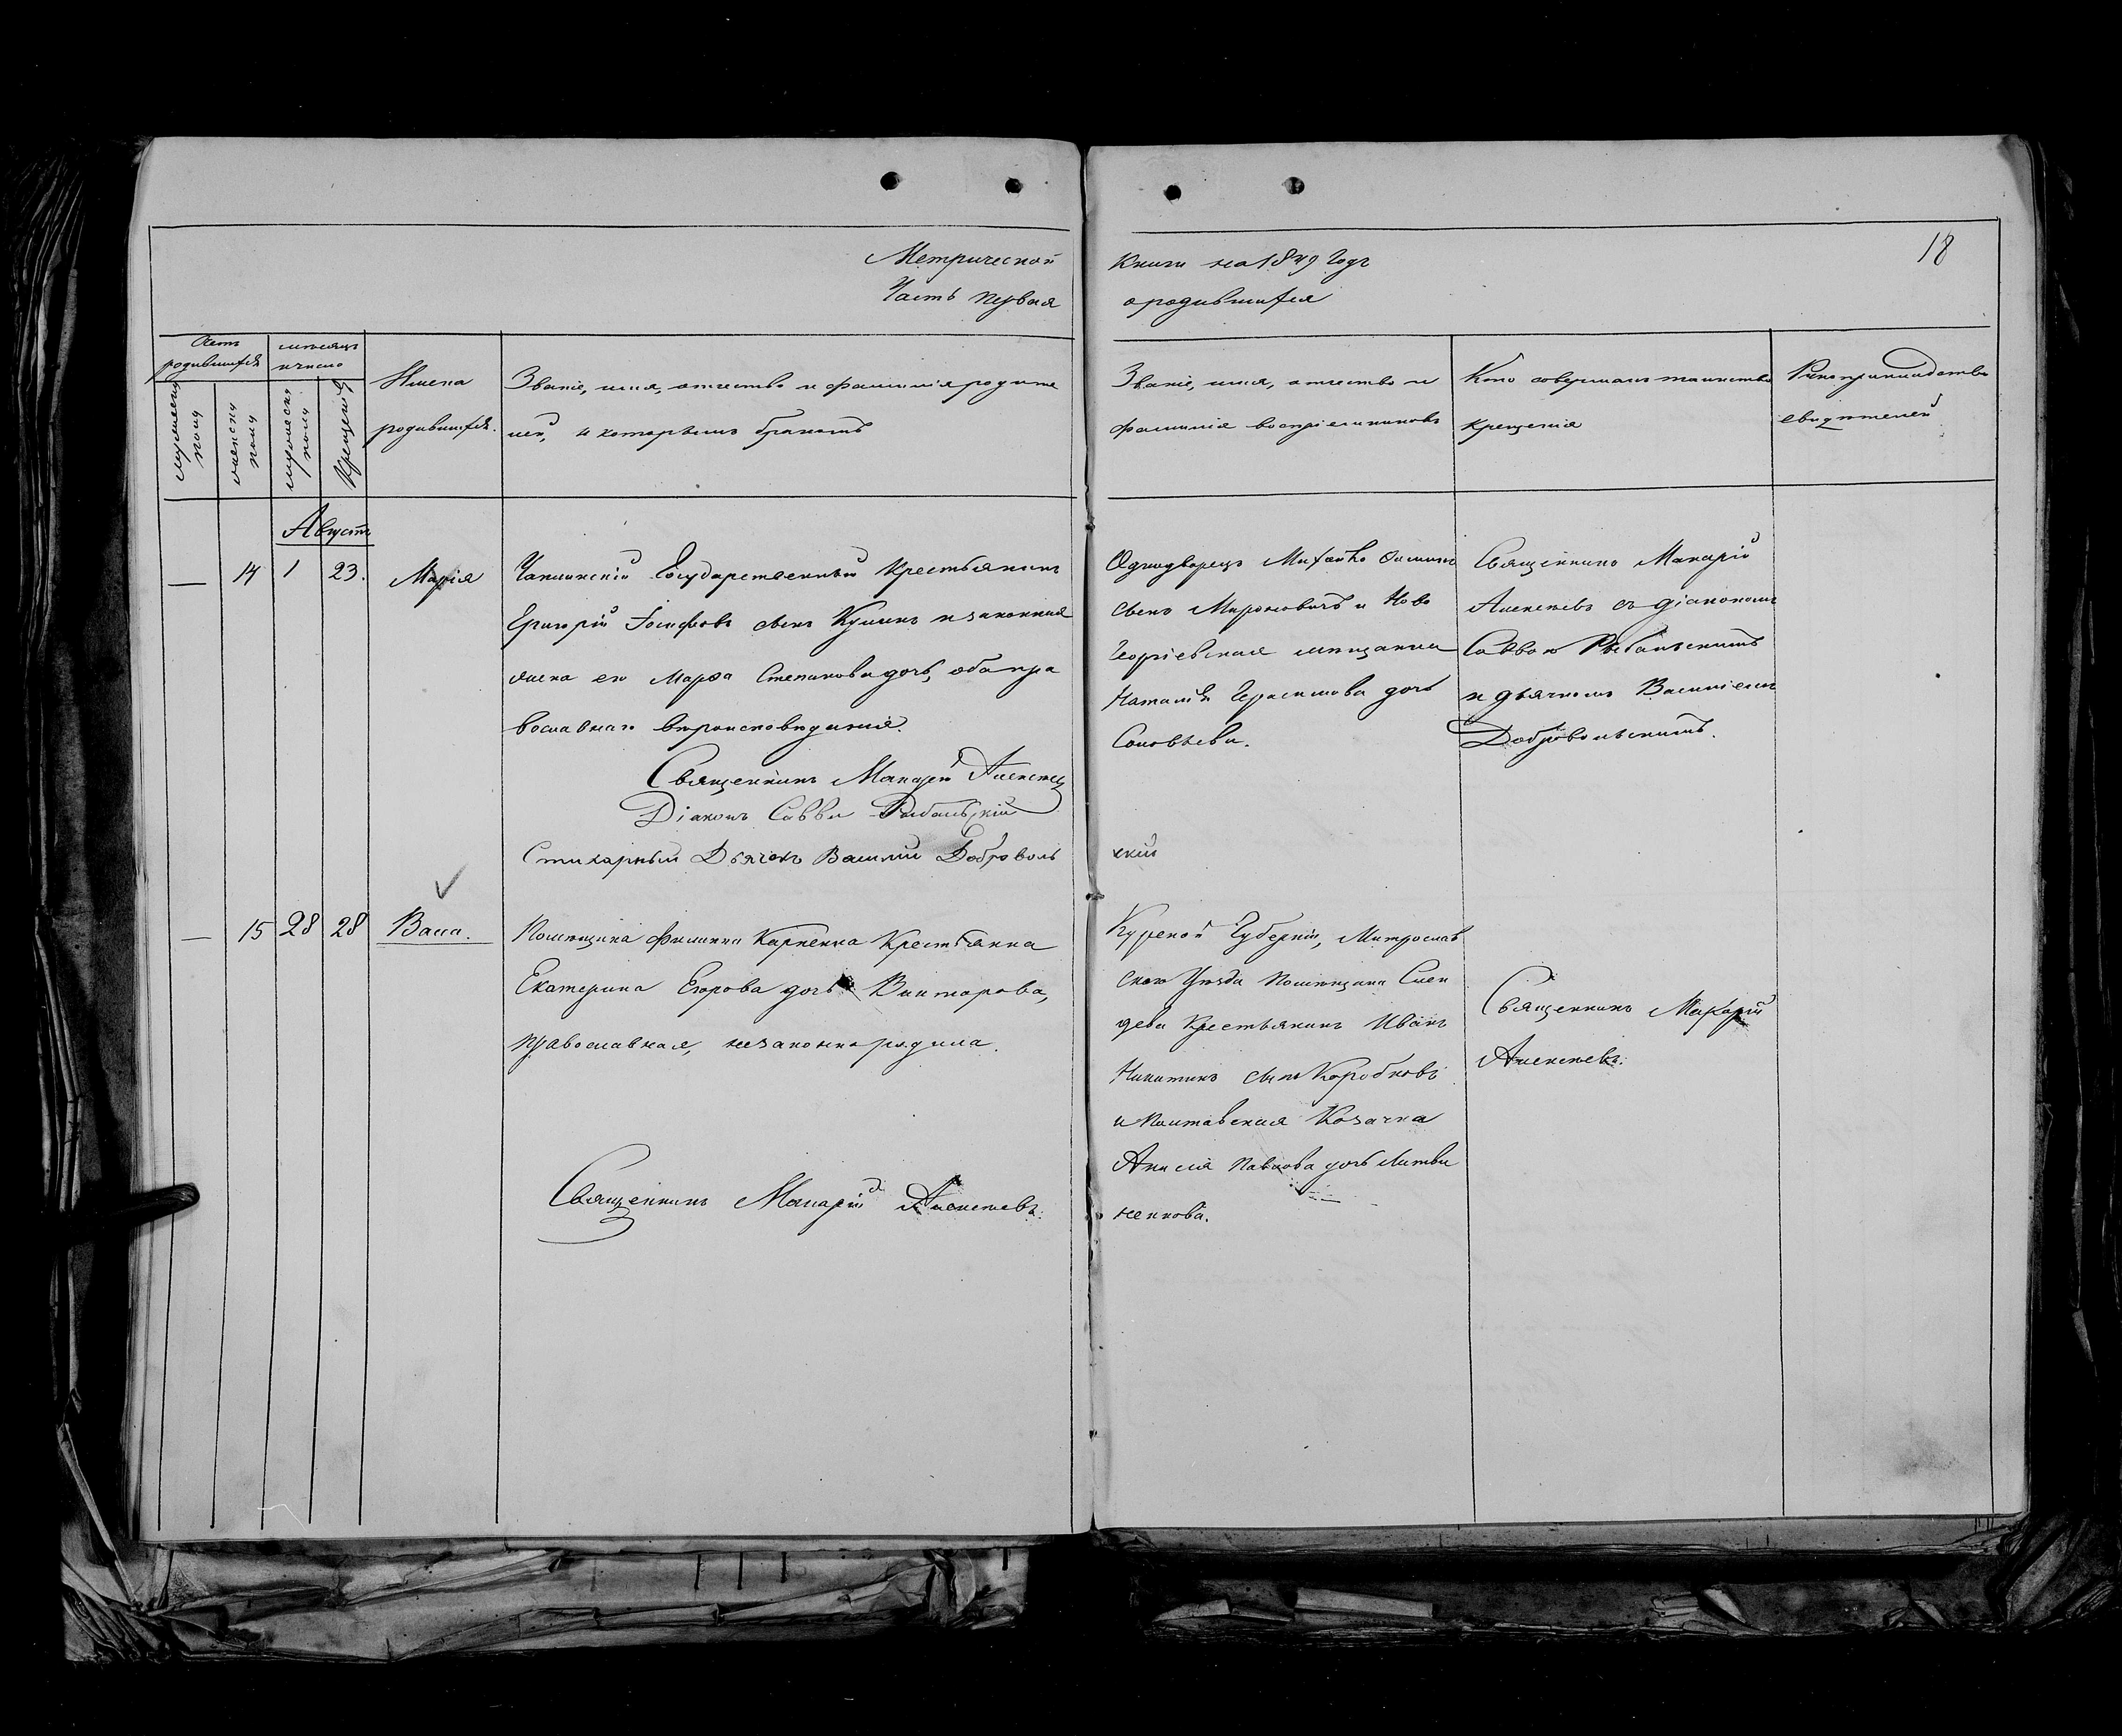 Метрической
Часть первая
Книги на 1849 Годъ
о родившихся
18
Счетъ
родившихся
мѣсяцъ
и число
мужеска
пола
женска
пола
Крещенія
Имена
родившихся.
Званіе, имя, отчество и фамилія родите
лей, и которымъ бракомъ
Званіе, имя, отчество и
фамилія воспріемниковъ
Кто совершалъ таинство
крещенія
Рукоприкладство
свидѣтелей
Августъ
— 14 1 23. Марія
Чаплинскій Государственный Крестьянинъ
Григорій Іосифовъ сынъ и законная
жена его Марѳа Степанова дочь, оба пра
вославнаго вѣроисповѣданія.
Священникъ Макарій Алексѣевъ
Діаконъ Савва Рыбальскій
Стихарный Дьячекъ Василий Доброволь
скій
Однодворецъ
сынъ Мироновичъ и Ново
георгіевская мѣщанка
Наталія Герасимова дочь
Соловьева.
Священникъ Макарій
Алексѣевъ съ діакономъ
Саввою Рыбальскимъ
и дьячкомъ Василіемъ
Добровольскимъ.
— 15 28 28 Васса.
Помѣщика Филиппа Карпенка Крестьянка
Екатерина Егорова дочь Викторова,
православная, незаконно родила.
Священникъ Макарій Алексѣевъ.
Курской Губерніи,
скаго Уѣзда помѣщика
дева Крестьянинъ Иванъ
Никитинъ сынъ Коробковъ
и Полтавская Козачка
Павлова дочь Литви
ненкова.
Священникъ Макарій
Алексѣевъ.